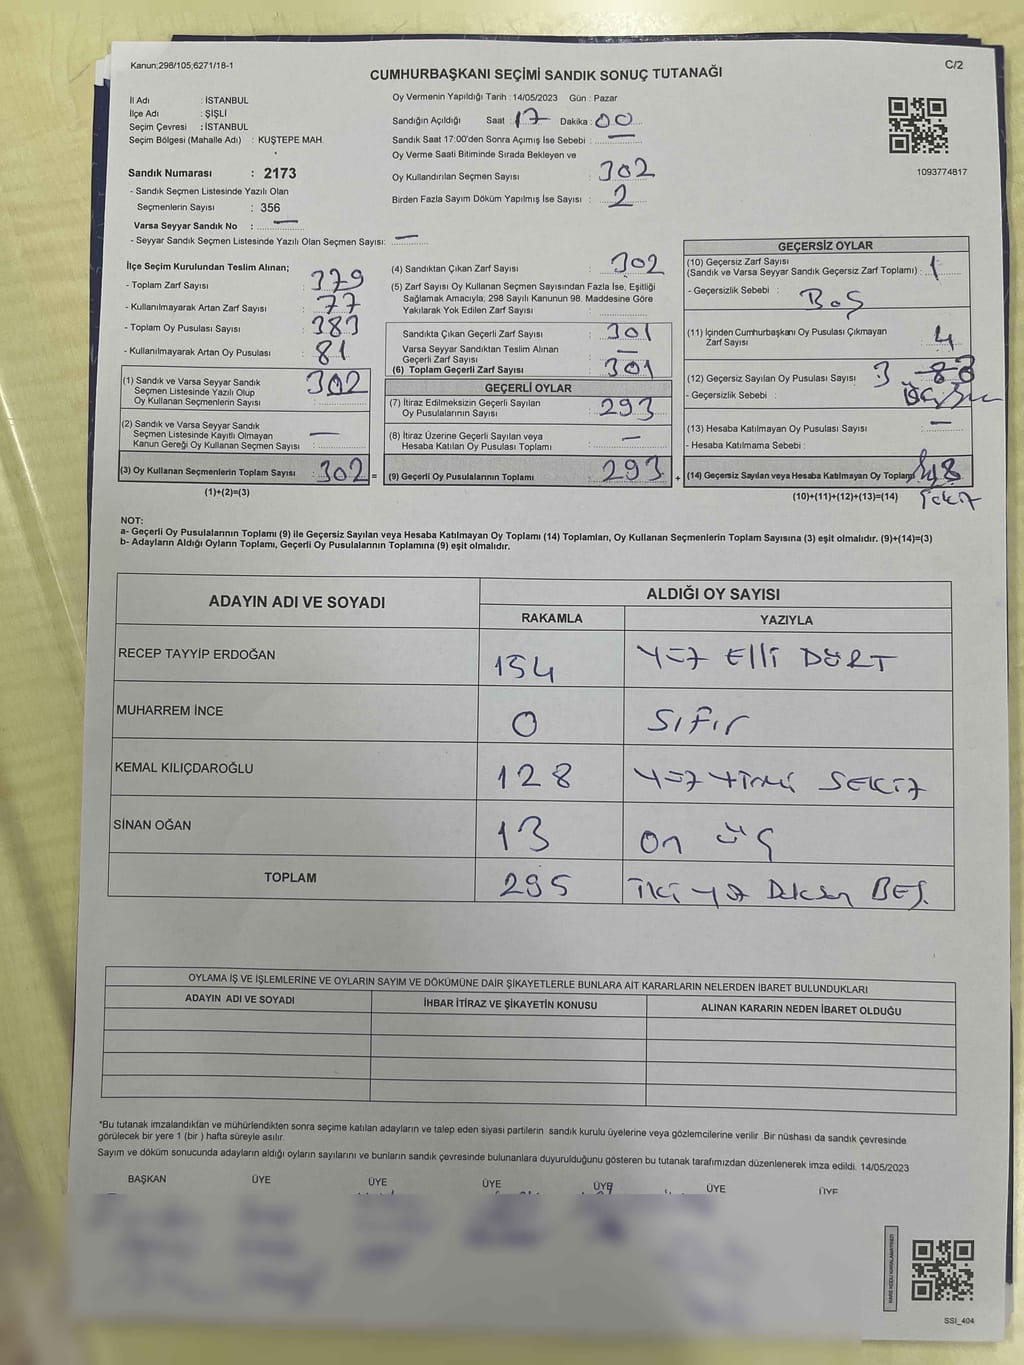 Kanun;298/105;6271/18-1
C/2
CUMHURBAŞKANI SEÇİMİ SANDIK SONUÇ TUTANAĞI
İl Adı : İSTANBUL
İlçe Adı : ŞİŞLİ
Seçim Çevresi : İSTANBUL
Seçim Bölgesi (Mahalle Adı) : KUŞTEPE MAH.
Sandık Numarası : 2173
- Sandık Seçmen Listesinde Yazılı Olan
Seçmenlerin Sayısı : 356
Varsa Seyyar Sandık No : —
- Seyyar Sandık Seçmen Listesinde Yazılı Olan Seçmen Sayısı: —
Oy Vermenin Yapıldığı Tarih : 14/05/2023 Gün : Pazar
Sandığın Açıldığı Saat : 17 Dakika : 00
Sandık Saat 17:00'den Sonra Açımış İse Sebebi : —
Oy Verme Saati Bitiminde Sırada Bekleyen ve
Oy Kullandırılan Seçmen Sayısı : 302
Birden Fazla Sayım Döküm Yapılmış İse Sayısı : 2
1093774817
İlçe Seçim Kurulundan Teslim Alınan;
- Toplam Zarf Sayısı : 379
- Kullanılmayarak Artan Zarf Sayısı : 77
- Toplam Oy Pusulası Sayısı : 383
- Kullanılmayarak Artan Oy Pusulası : 81
(1) Sandık ve Varsa Seyyar Sandık
Seçmen Listesinde Yazılı Olup
Oy Kullanan Seçmenlerin Sayısı : 302
(2) Sandık ve Varsa Seyyar Sandık
Seçmen Listesinde Kayıtlı Olmayan
Kanun Gereği Oy Kullanan Seçmen Sayısı : —
(3) Oy Kullanan Seçmenlerin Toplam Sayısı : 302 =
(1)+(2)=(3)
(4) Sandıktan Çıkan Zarf Sayısı : 302
(5) Zarf Sayısı Oy Kullanan Seçmen Sayısından Fazla İse, Eşitliği
Sağlamak Amacıyla; 298 Sayılı Kanunun 98. Maddesine Göre
Yakılarak Yok Edilen Zarf Sayısı :
Sandıkta Çıkan Geçerli Zarf Sayısı : 301
Varsa Seyyar Sandıktan Teslim Alınan
Geçerli Zarf Sayısı : —
(6) Toplam Geçerli Zarf Sayısı : 301
GEÇERLİ OYLAR
(7) İtiraz Edilmeksizin Geçerli Sayılan
Oy Pusulalarının Sayısı : 293
(8) İtiraz Üzerine Geçerli Sayılan veya
Hesaba Katılan Oy Pusulası Toplamı : —
(9) Geçerli Oy Pusulalarının Toplamı : 293 +
GEÇERSİZ OYLAR
(10) Geçersiz Zarf Sayısı
(Sandık ve Varsa Seyyar Sandık Geçersiz Zarf Toplamı) : 1
- Geçersizlik Sebebi : BOŞ
(11) İçinden Cumhurbaşkanı Oy Pusulası Çıkmayan
Zarf Sayısı : 4
(12) Geçersiz Sayılan Oy Pusulası Sayısı : 3
- Geçersizlik Sebebi :
(13) Hesaba Katılmayan Oy Pusulası Sayısı : —
- Hesaba Katılmama Sebebi :
(14) Geçersiz Sayılan veya Hesaba Katılmayan Oy Toplamı 8
(10)+(11)+(12)+(13)=(14) Sekiz
NOT:
a- Geçerli Oy Pusulalarının Toplamı (9) ile Geçersiz Sayılan veya Hesaba Katılmayan Oy Toplamı (14) Toplamları, Oy Kullanan Seçmenlerin Toplam Sayısına (3) eşit olmalıdır. (9)+(14)=(3)
b- Adayların Aldığı Oyların Toplamı, Geçerli Oy Pusulalarının Toplamına (9) eşit olmalıdır.
ADAYIN ADI VE SOYADI
ALDIĞI OY SAYISI
RAKAMLA YAZIYLA
RECEP TAYYİP ERDOĞAN 154 Yüz Elli DÖRT
MUHARREM İNCE 0 Sıfır
KEMAL KILIÇDAROĞLU 128 Yüz Yirmi SEKİZ
SİNAN OĞAN 13 On üç
TOPLAM 295 İki yüz Doksan BEŞ.
OYLAMA İŞ VE İŞLEMLERİNE VE OYLARIN SAYIM VE DÖKÜMÜNE DAİR ŞİKAYETLERLE BUNLARA AİT KARARLARIN NELERDEN İBARET BULUNDUKLARI
ADAYIN ADI VE SOYADI İHBAR İTİRAZ VE ŞİKAYETİN KONUSU ALINAN KARARIN NEDEN İBARET OLDUĞU
*Bu tutanak imzalandıktan ve mühürlendikten sonra seçime katılan adayların ve talep eden siyasi partilerin sandık kurulu üyelerine veya gözlemcilerine verilir .Bir nüshası da sandık çevresinde
görülecek bir yere 1 (bir ) hafta süreyle asılır.
Sayım ve döküm sonucunda adayların aldığı oyların sayılarını ve bunların sandık çevresinde bulunanlara duyurulduğunu gösteren bu tutanak tarafımızdan düzenlenerek imza edildi. 14/05/2023
BAŞKAN ÜYE ÜYE ÜYE ÜYE ÜYE ÜYE
KARE KODU KARALAMAYINIZ!
SSI_404